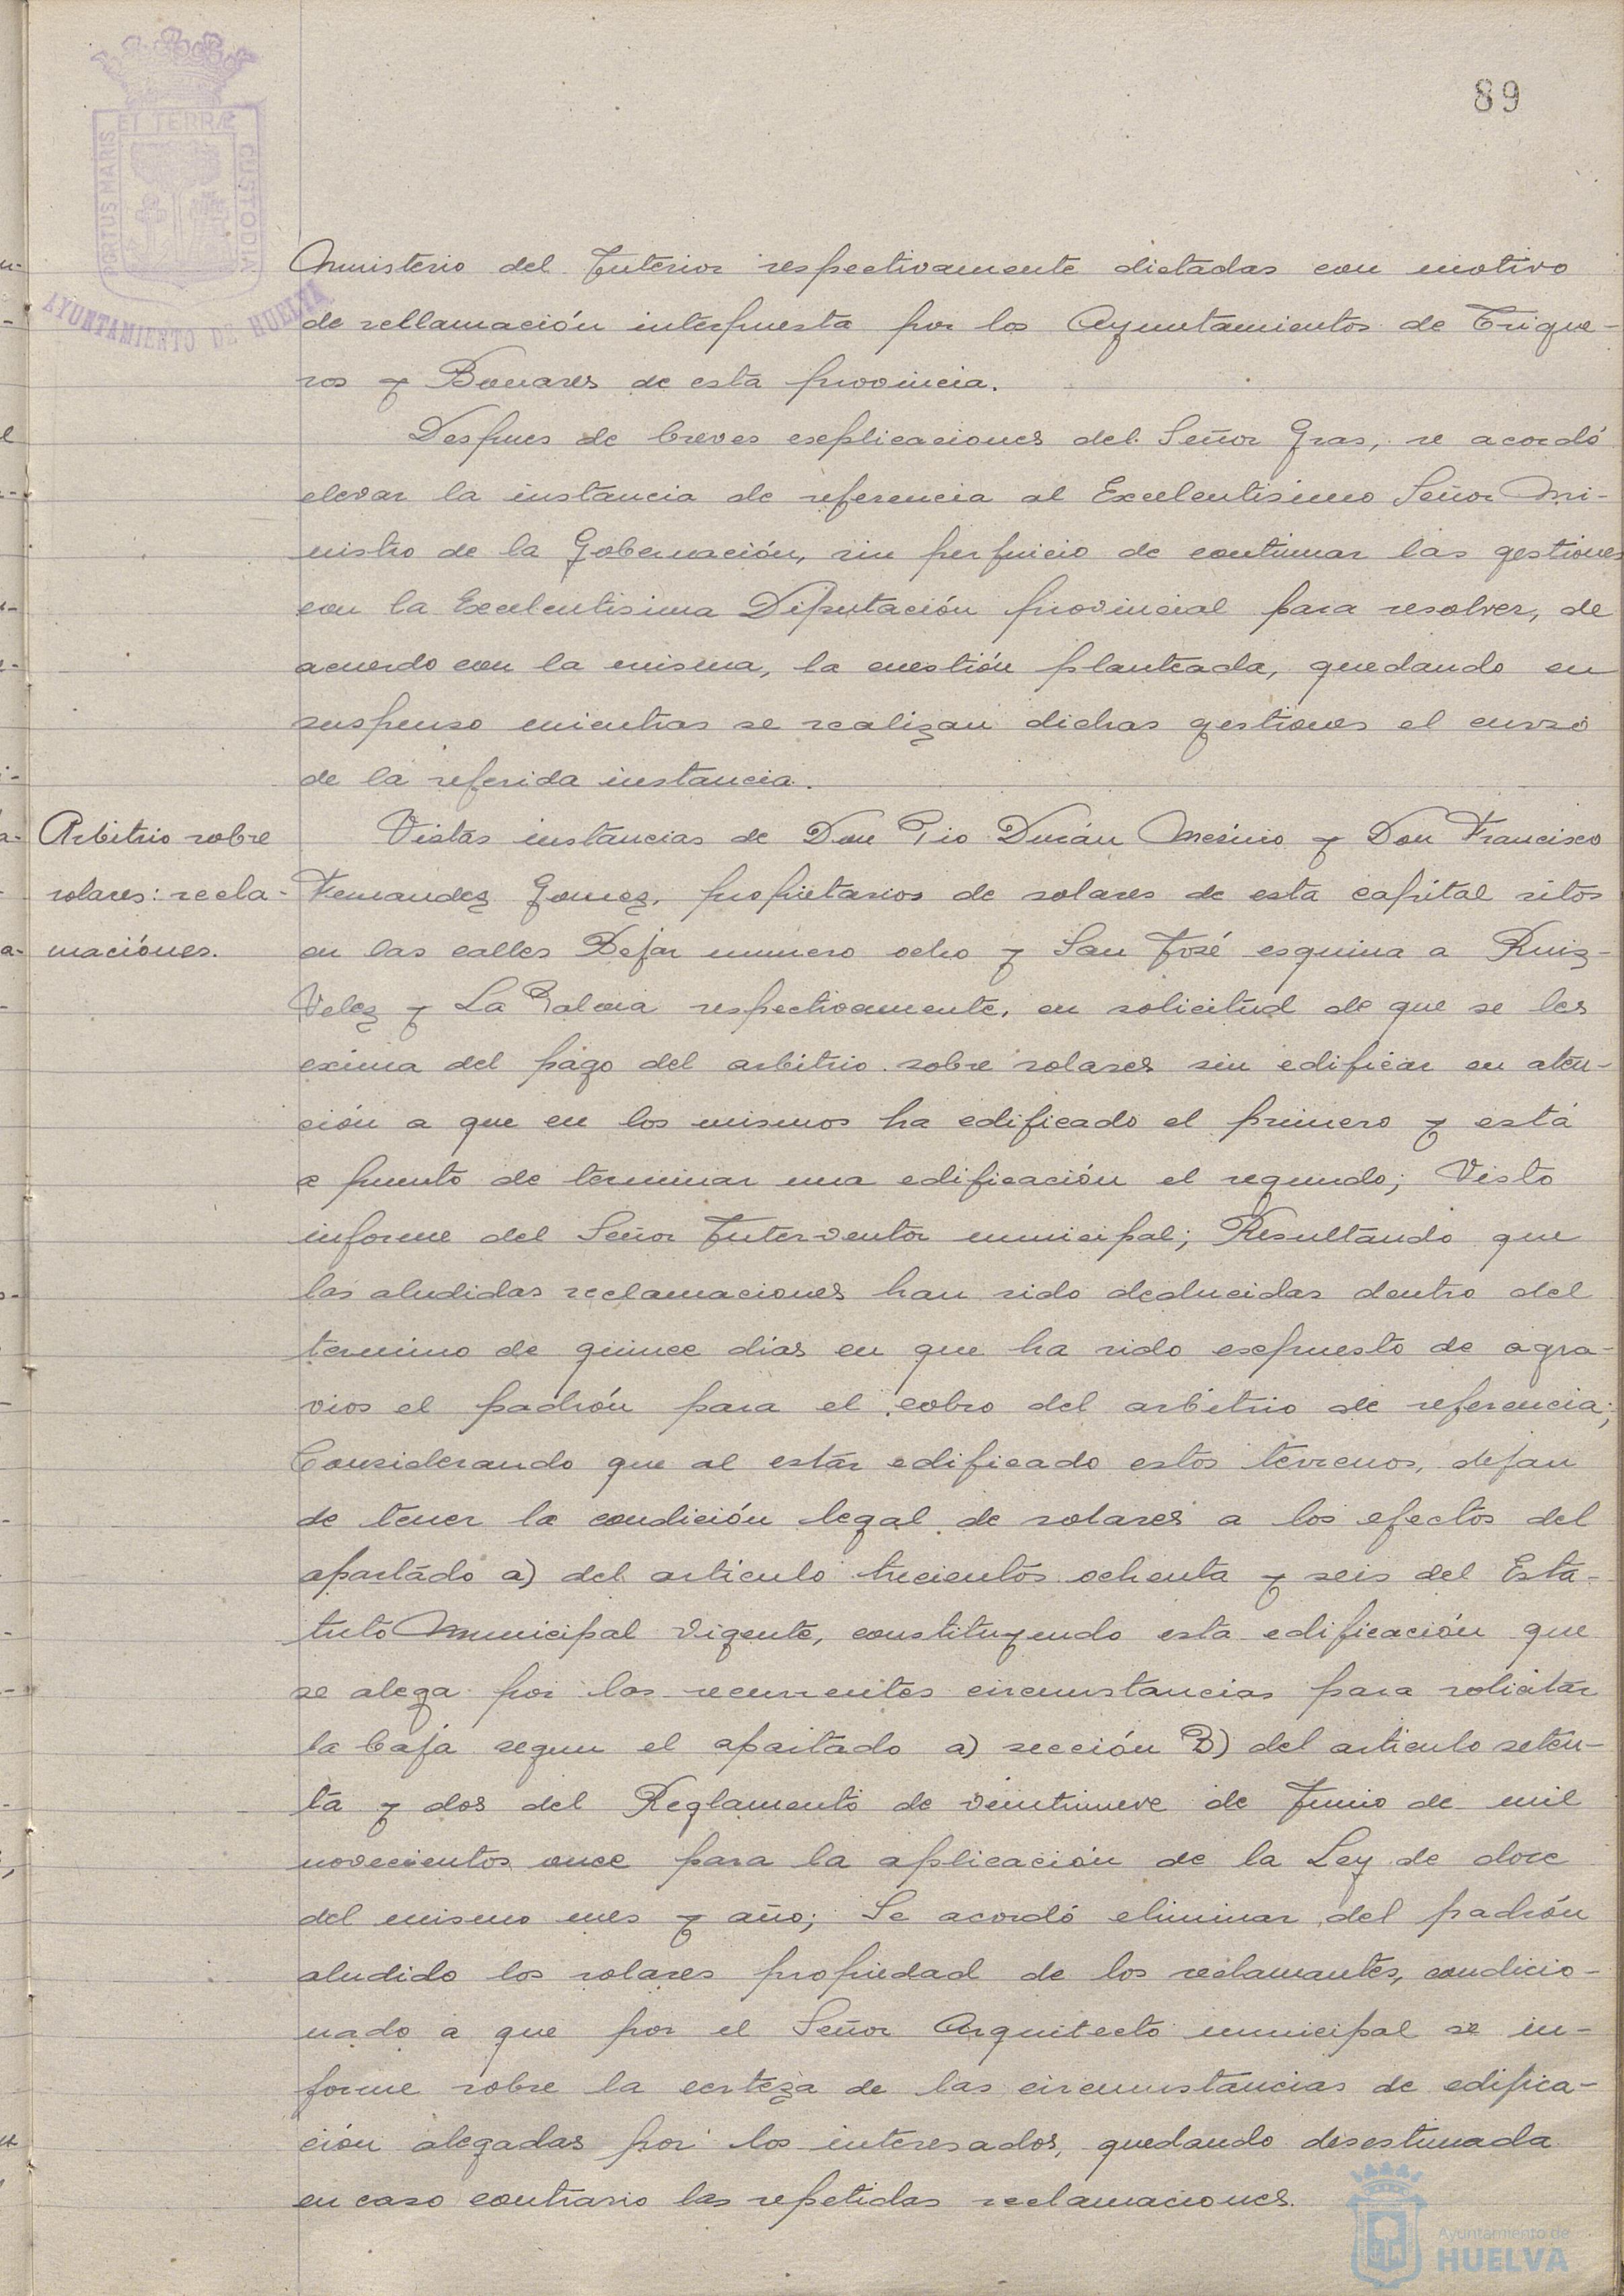 89
ET TERRÆ
PORTUS MARIS
CUSTODIA
AYUNTAMIENTO DE HUELVA
Ministerio del Interior respectivamente dictadas con motivo
de rellamación interpuesta por los Ayuntamientos de Trigue-
ros y Bonares de esta provincia.
Despues de breves explicaciones del Señor Gras, se acordó
elevar la instancia de referencia al Excelentisimo Señor Mi-
nistro de la Gobernación, sin perjuicio de continuar las gestiones
con la Excelentisima Diputación provincial para resolver, de
acuerdo con la misma, la cuestión planteada, quedando en
suspenso mientras se realizan dichas gestiones el curso
de la referida instancia.
Arbitrio sobre
solares: recla-
maciónes.
Vistas instancias de Don Pio Durán Merino y Don Francisco
Fernandez Gomez, propietarios de solares de esta capital sitos
en las calles Bejar numero ocho y San José esquina a Ruiz-
Velez y La Palma respectivamente, en solicitud de que se les
exima del pago del arbitrio sobre solares sin edificar en aten-
ción a que en los mismos ha edificado el primero y está
a punto de terminar una edificación el segundo; Visto
informe del Señor Interventor municipal; Resultando que
las aludidas reclamaciones han sido deducidas dentro del
termino de quince dias en que ha sido expuesto de agra-
vios el padrón para el cobro del arbitrio de referencia;
Considerando que al estar edificado estos terrenos, dejan
de tener la condición legal de solares a los efectos del
apartado a) del articulo trecientos ochenta y seis del Esta-
tuto Municipal vigente, constituyendo esta edificación que
se alega por los recurrentes circunstancias para solicitar
la baja segun el apartado a) sección B) del articulo seten-
ta y dos del Reglamento de veintinueve de Junio de mil
novecientos once para la aplicación de la Ley de doce
del mismo mes y año; Se acordó eliminar del padrón
aludido los solares propiedad de los reclamantes, condicio-
nado a que por el Señor Arquitecto municipal se in-
forme sobre la certeza de las circunstancias de edifica-
ción alegadas por los interesados, quedando desestimada
en caso contrario las repetidas reclamaciones.
Ayuntamiento de
HUELVA